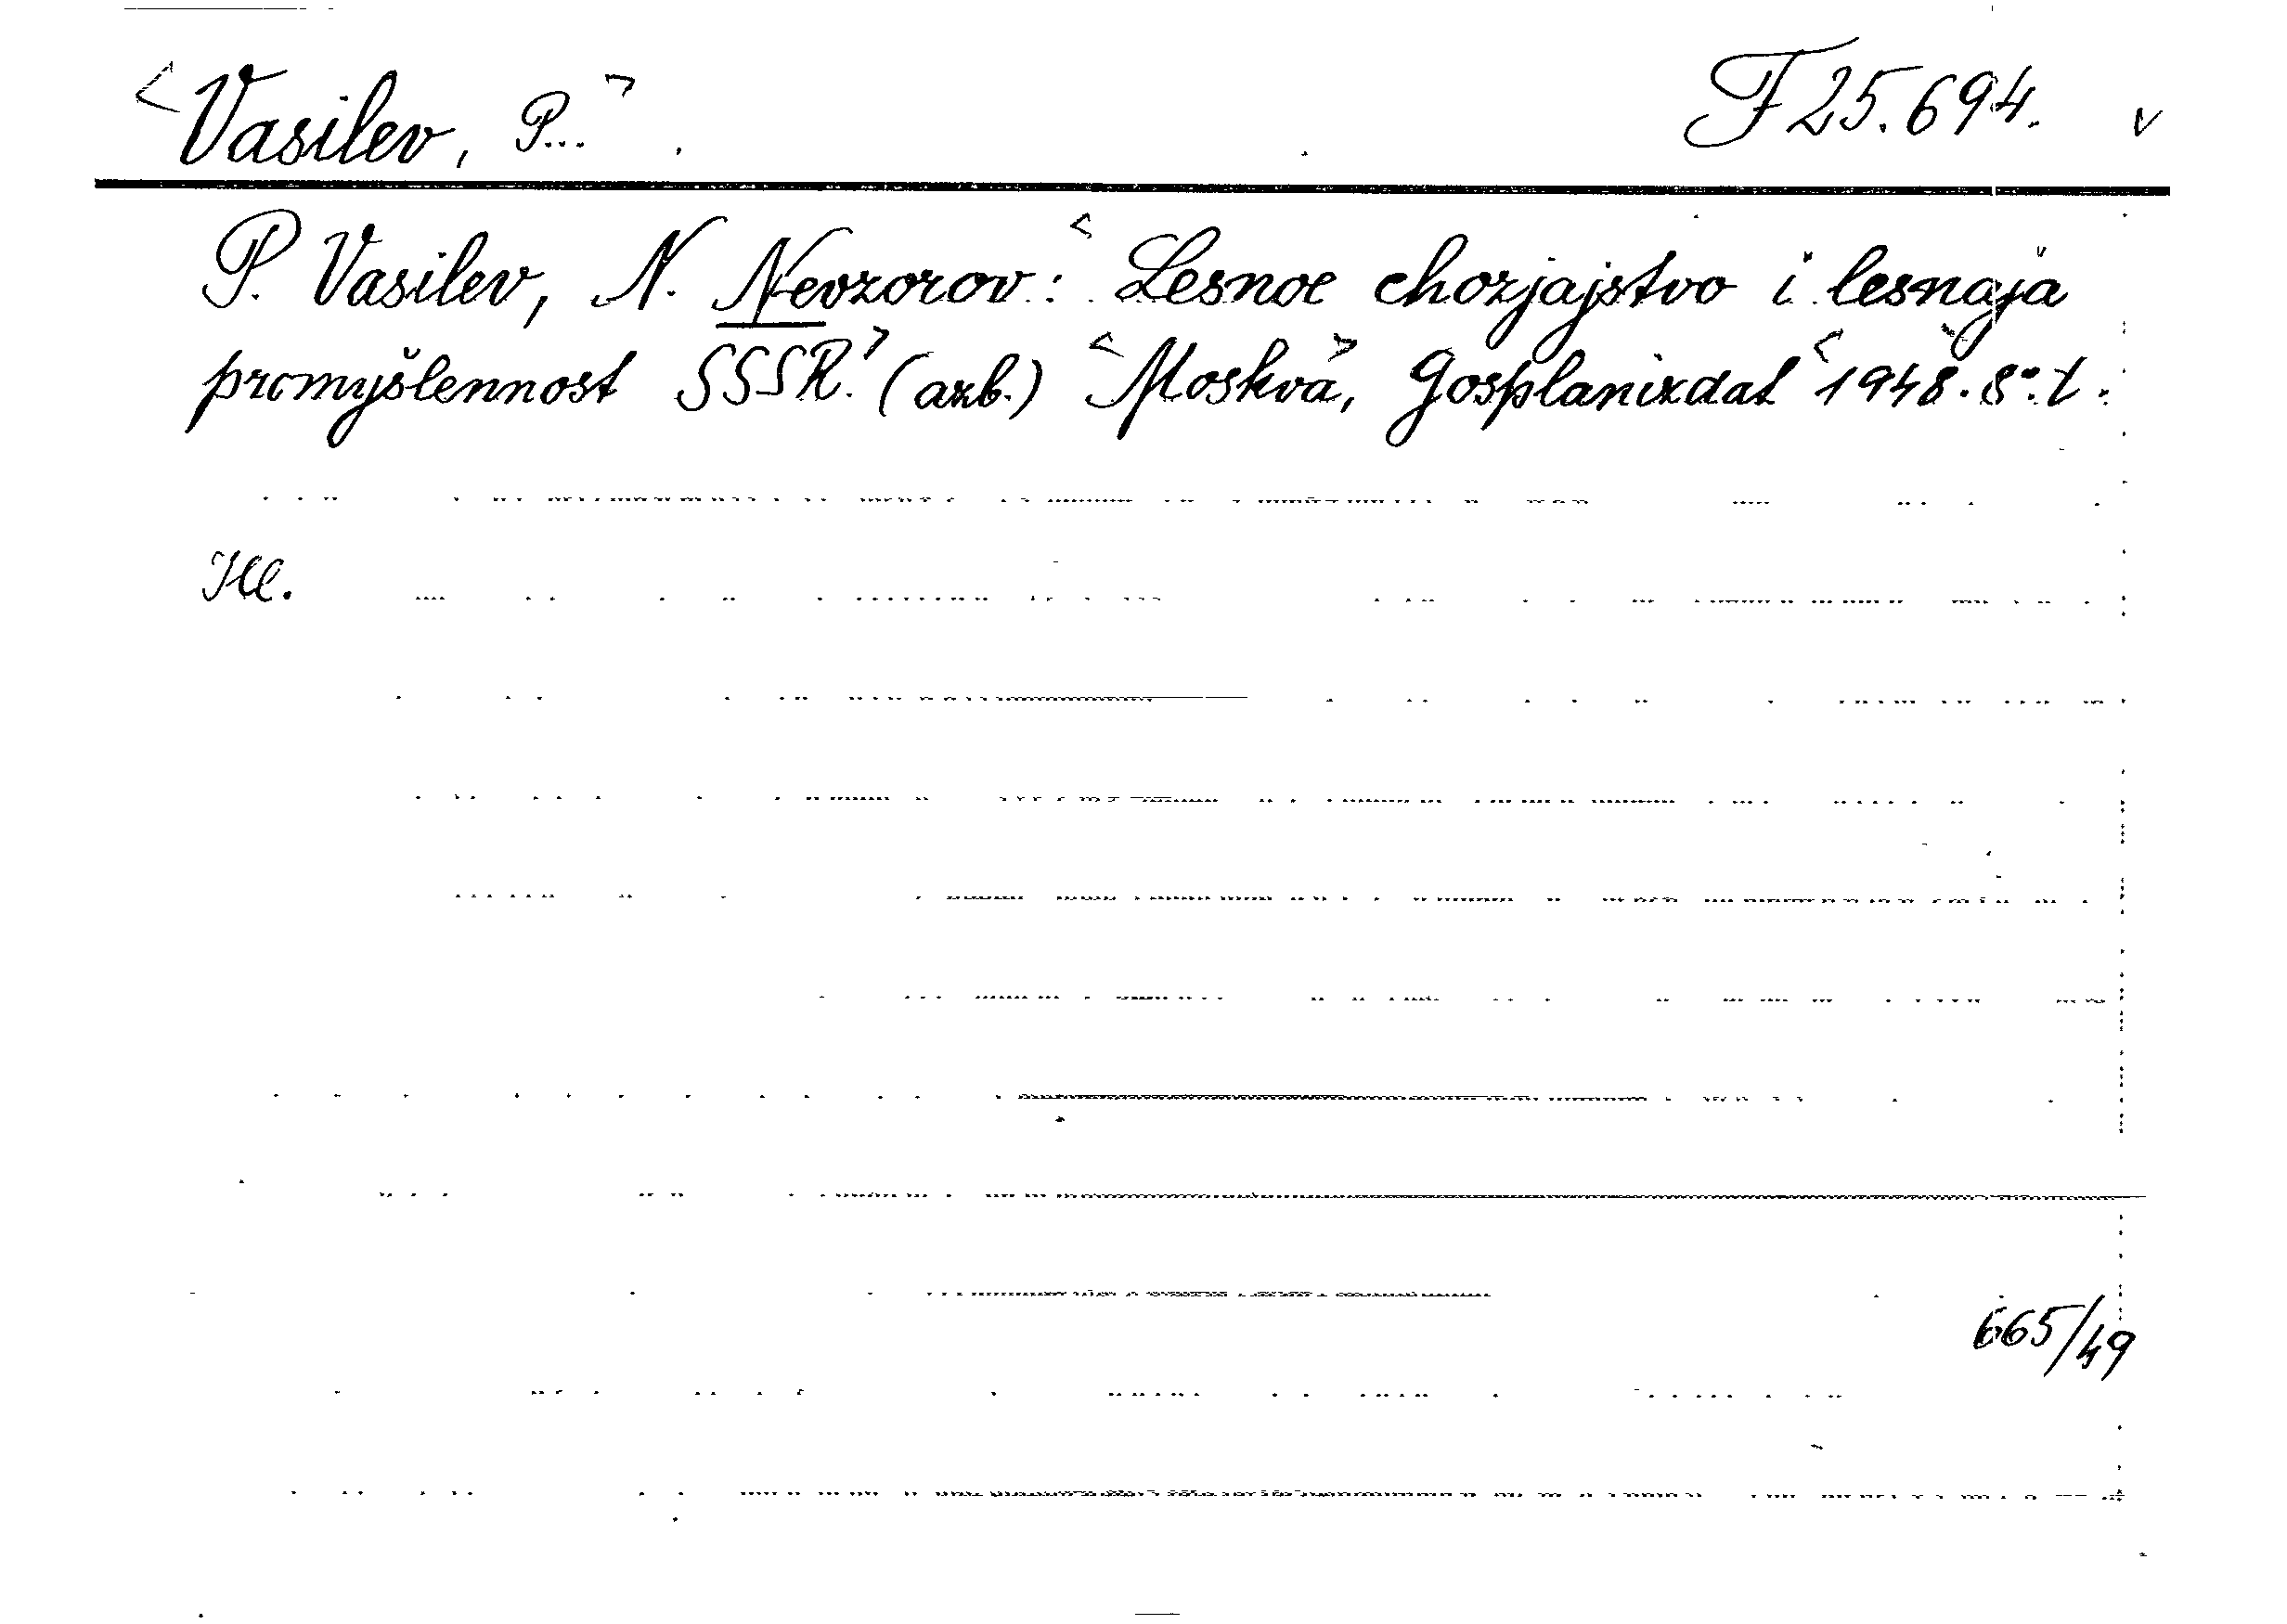 <Vasilev, P...>. F 25.694. v
P. Vasilev, N. Nevzorov: <Lesnoe chozjajstvo i lesnaja
promyšlennost SSSR.> (azb.) <Moskva>, Gosplanizdat <1948. 8°. t.
Ill.
665/49